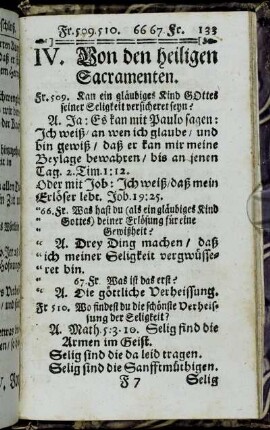 Fr. 509. 510. 66 67. Fr. 133
IV. Von den heiligen
Sacramenten.
Fr. 509. Kan ein gläubiges Kind GOttes
seiner Seligkeit versicheret seyn?
A. Ja: Es kan mit Paulo sagen:
Ich weiß/ an wen ich glaube/ und
bin gewiß/ daß er kan mir meine
Beylage bewahren/ bis an jenen
Tag. 2. Tim. 1: 12.
Oder mit Job: Ich weiß/ daß mein
Erlöser lebt. Job. 19: 25.
"66. Fr. Was hast du (als ein gläubiges Kind
" Gottes) deiner Erlösung für eine
" Gewißheit?
" A. Drey Ding machen/ daß
"ich meiner Seligkeit vergwüsse-
"ret bin.
" 67. Fr. Was ist das erst?
" A. Die göttliche Verheissung.
Fr 510. Wo findest du die schönste Verheis-
sung der Seligkeit?
A. Math. 5: 3-10. Selig sind die
Armen im Geist.
Selig sind die da leid tragen.
Selig sind die Sanfftmüthigen.
F 7 Selig